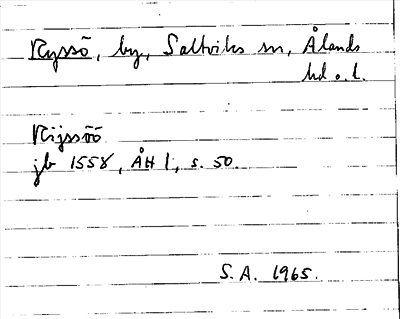 Ryssö, by, Saltviks sn, Ålands
hd o. l.
Rijssöö
jb 1558, ÅH 1, s. 50.
S.A. 1965.